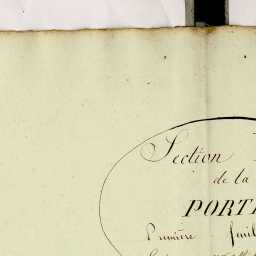 Section
de la
PORT
Première feuil